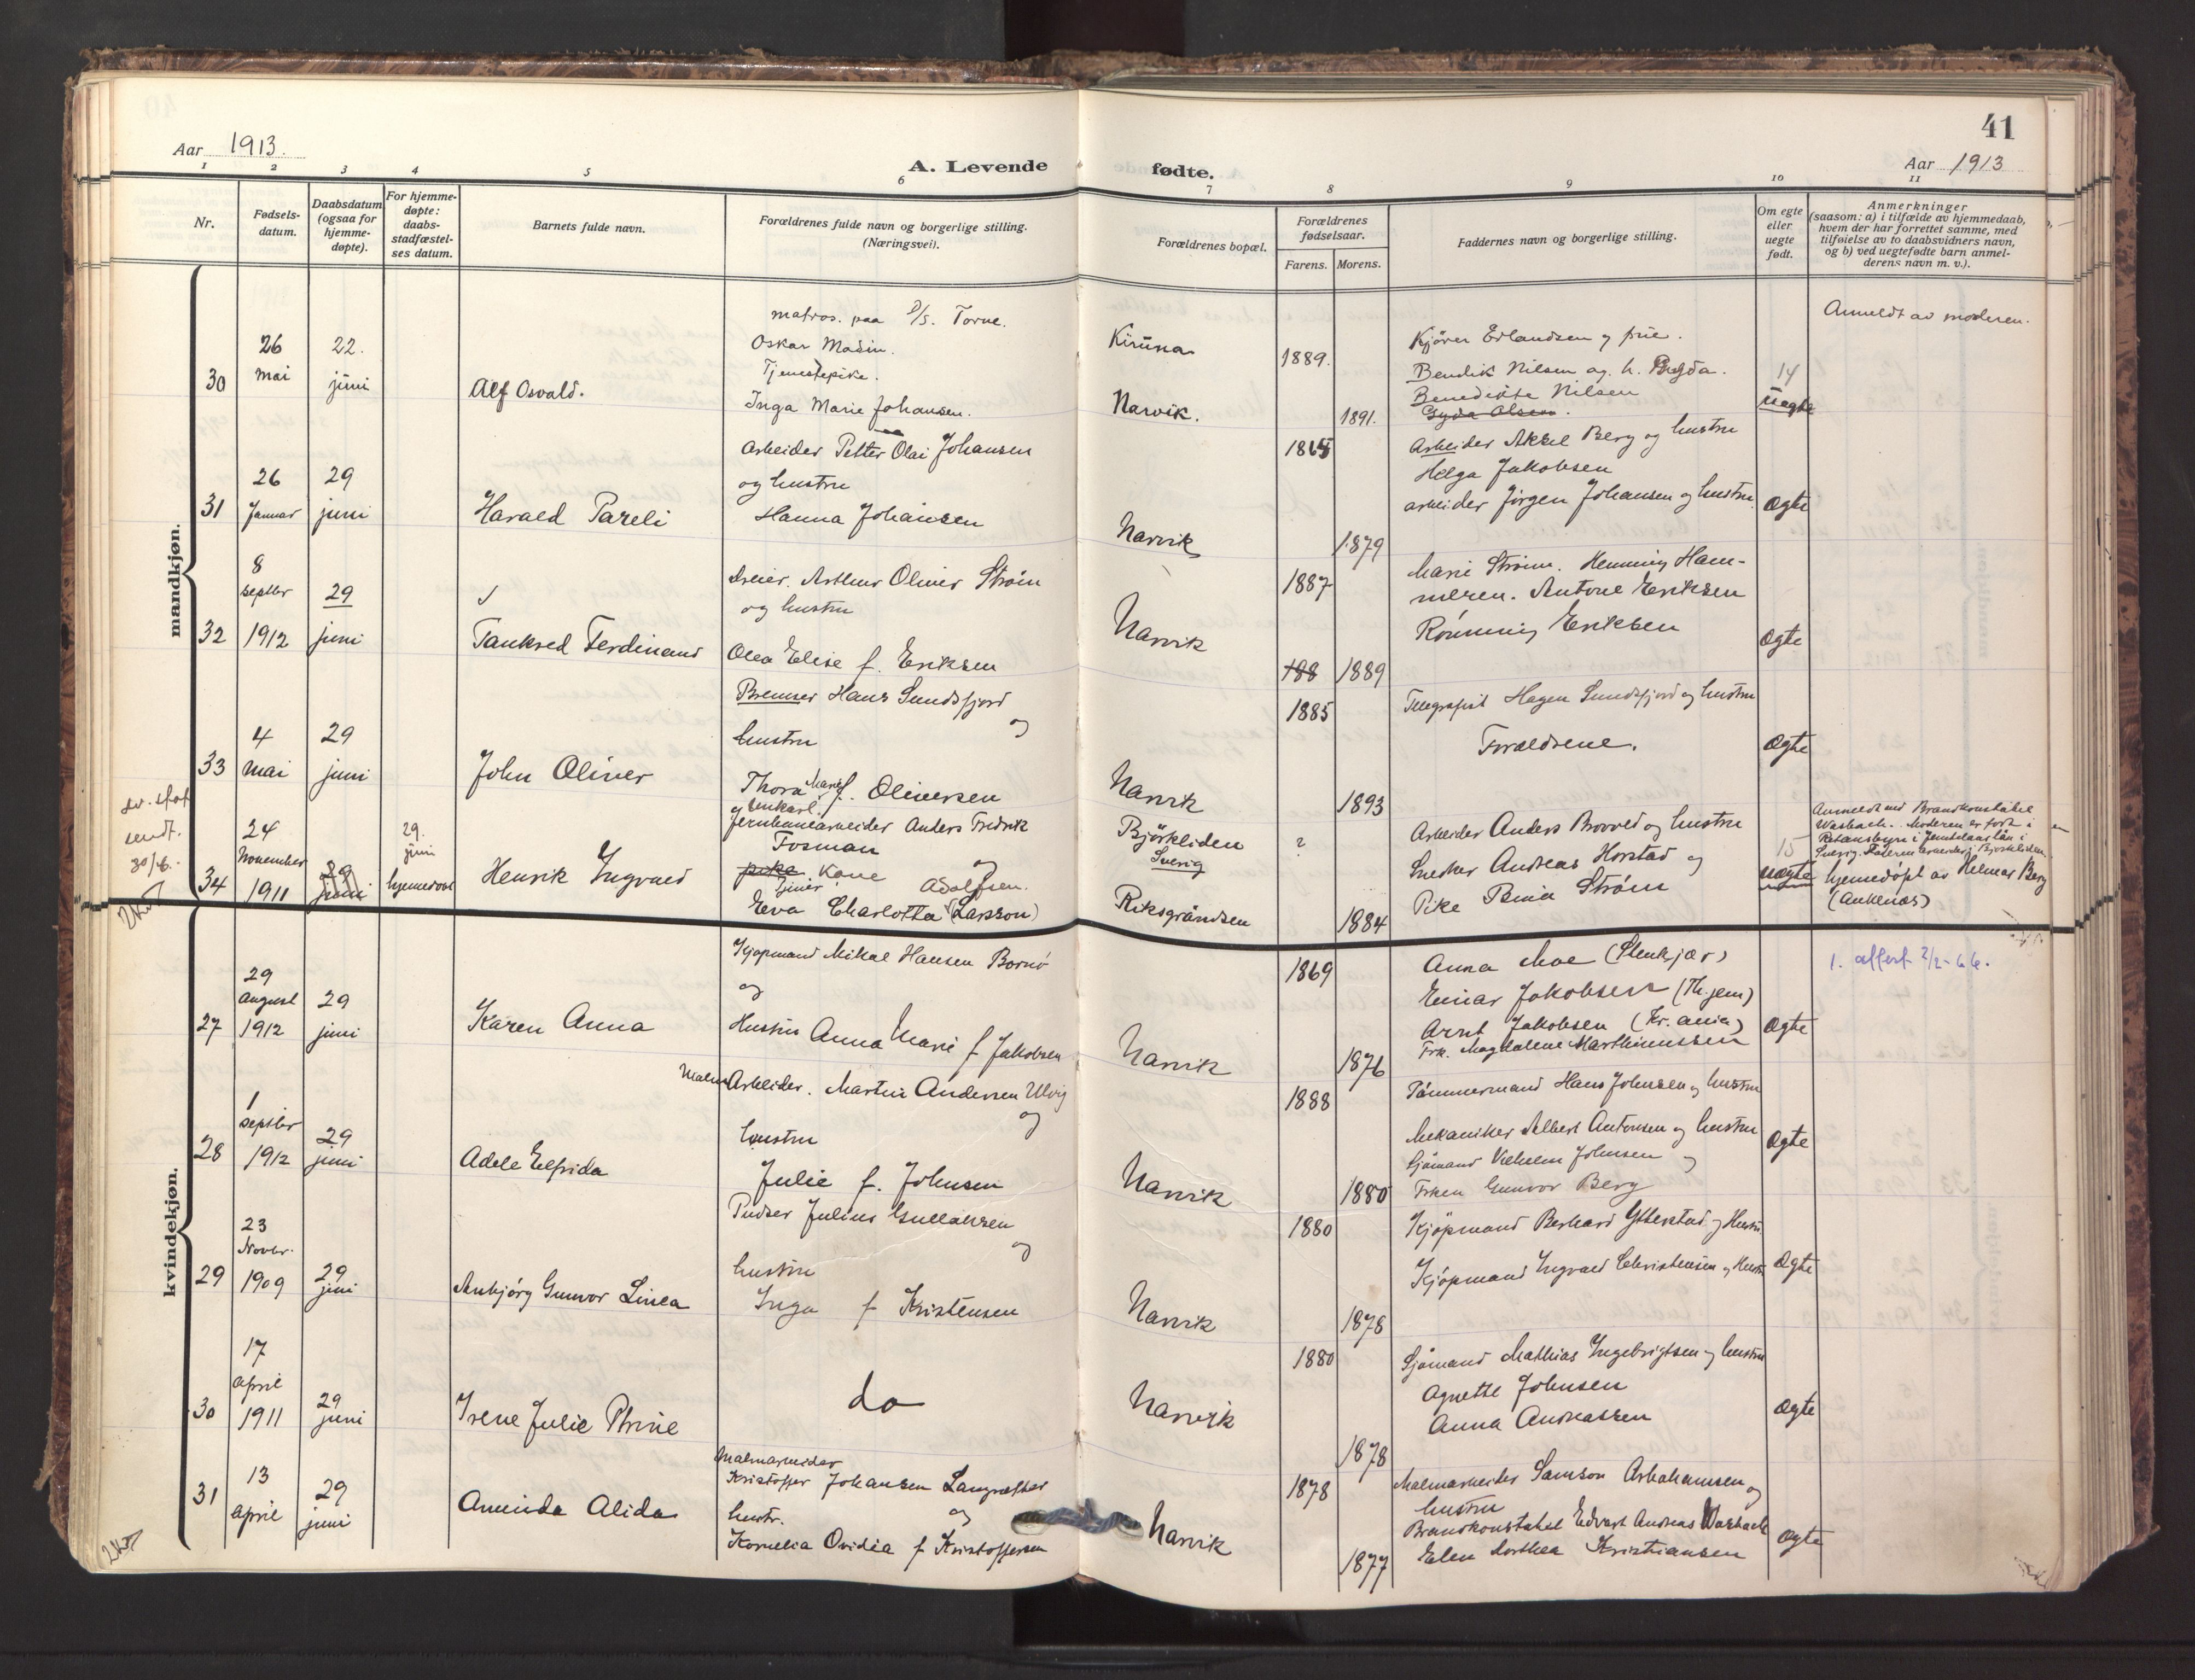 41
Aar 1913.
A. Levende
fødte.
Aar 1913
1 2 3 4 5 6 7 8 9 10 11
Nr.
Fødsels-
datum.
Daabsdatum
(ogsaa for
hjemme-
døpte).
For hjemme-
døpte:
daabs-
stadfæstel-
ses datum.
Barnets fulde navn.
Forældrenes fulde navn og borgerlige stilling.
(Næringsvei).
Forældrenes bopæl.
Forældrenes
fødselsaar.
Farens. Morens.
Faddernes navn og borgerlige stilling.
Om egte
eller
uegte
født.
Anmerkninger
(saasom: a) i tilfælde av hjemmedaab,
hvem der har forrettet samme, med
tilføielse av to daabsvidners navn,
og b) ved uegtefødte barn anmel-
derens navn m. v.).
mandkjøn.
30
26
mai
22.
juni
Alf Osvald.
matros. paa D/S. Torne.
Oskar Modin.
Tjenestepike.
Inga Marie Johansen.
Kiruna
Narvik.
1889.
1891.
Kjører Erlandsen og frue.
Bendik Nilsen og h.
Benedikte Nilsen
Gyda Olsen.
14
uegte
Anmeldt av moderen.
31
26
Januar
29
juni
Harald Pareli
Arbeider Petter Olai Johansen
og hustru
Hanna Johansen
Narvik
1879
Arbeider Aksel Berg og hustru
Helga Jakobsen
arbeider Jørgen Johansen og hustru
Ægte
32
8
septbr
1912
29
juni
Tankred Ferdinand
Dreier. Arthur Oliver Strøm
og hustru
Olea Elise f. Eriksen
Narvik
1887
188
1889
Marie Strøm. Henning Ham-
meren. Antone Eriksen
Rønning Eriksen
Ægte
33
4
mai
29
juni
John Oliver
Bremser Hans Sundsfjord
og
hustru
Thora Marie f. Oliversen
Narvik
1885
1893
Telegrafist Hagen Sundsfjord og hustru
Forældrene.
Ægte
sendt.
30/6.
34
24
November
1911
29
juni
29.
juni
Henrik Ingvald
ungkarl
Jernbanearbeider Anders Fredrik
Fosman
og
pike Kone
Eva Charlotta (Larsson)
Björkliden
Sverig
Riksgrändsen
?
1884
Arbeider Anders Brovold og hustru
Snekker Andreas Horstad og
Pike Strøm
15
uegte
Anmeldt ved Brandkonstabel
Wasbach. Moderen er født i
i Jemtelands län i
Sverig. Faderen arbeider i Bjørkliden
hjemedøpt av Helmer Berg
(Ankenæs)
kvindekjøn.
27
29
august
1912
29
juni
Karen Anna
Kjøpmand Mikal Hansen Bornø
og
Hustru Anna Marie f Jakobsen
Narvik
1869
1876
Anna Moe (Stenkjær)
Einar Jakobsen (Th.jem)
Arnt Jakobsen (Kr.ania)
Frk. Magdalene Marthinussen
Ægte
1. attest 2/2-66.
28
1
septbr
1912
29
juni
Adele Elfrida
MalmArbeider. Martin Andersen Ulvig
og
hustru
Julie f. Johnsen
Narvik
1888
1880
Tømmermand Hans Johnsen og hustru
Mekaniker Albert Antonsen og hustru
Sjømand Vilhelm Johnsen og
Frken Gunvor Berg
Ægte
29
23
Novbr.
1909
29
juni
Anbjørg Gunvor Linea
Pudser Julius Gullaksen
og
hustru
Inga f Kristensen
Narvik
1880
1878
Kjøpmand Berhard Ytterstad og Hustru
Kjøpmand Ingvald Christensen og Hustru
Ægte
30
17
april
1911
29
juni
Irene Julie Petrine
do
Narvik
1880
1878
Sjømand Mathias Ingebrigtsen og hustru
Agnethe Johnsen
Anna Andreassen
Ægte
31
13
april
29
juni
Aminda Alida
Malmarbeider
Kristoffer Johansen Langræster
hustr. og
Kornelia Ovidia f Kristoffersen
Narvik
1878
1877
Malmarbeider Samson Arbahamsen og
hustru
Brandkonstabel Edvart Andreas Wasbach
Elen Dorthea Kristiansen
Ægte